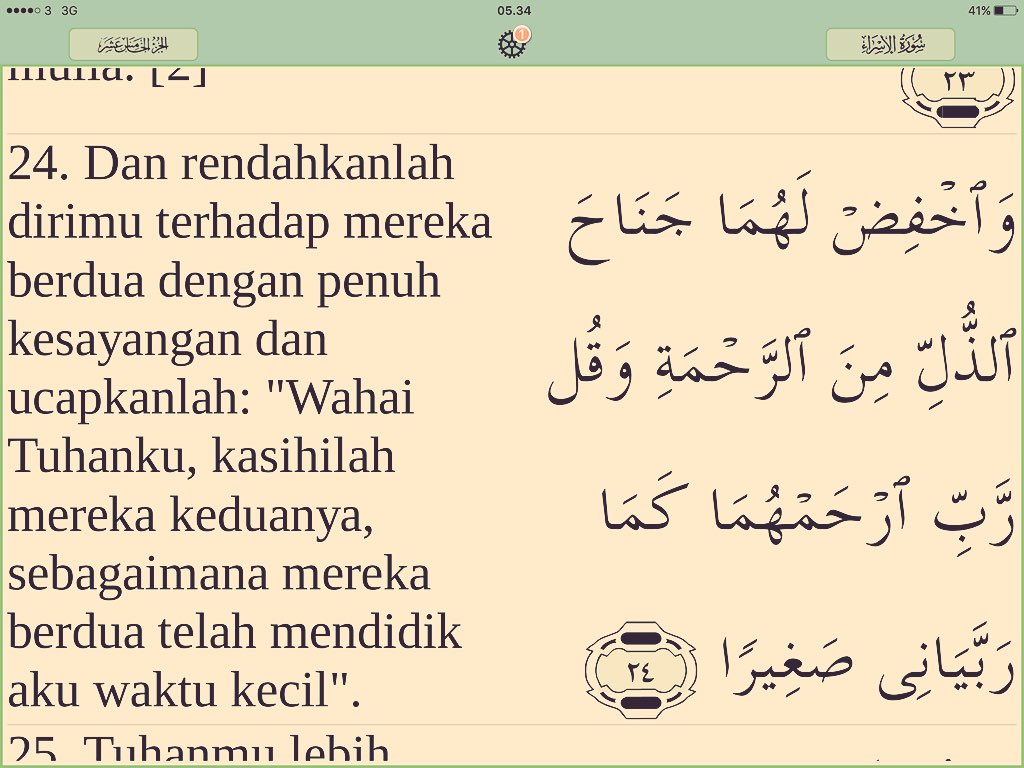 3 3G 05.34 41%
الجزء الخامس عشر 1 سورة الإسراء
mulia. [2] ٢٣
24. Dan rendahkanlah
dirimu terhadap mereka
berdua dengan penuh
kesayangan dan
ucapkanlah: "Wahai
Tuhanku, kasihilah
mereka keduanya,
sebagaimana mereka
berdua telah mendidik
aku waktu kecil".
وَٱخْفِضْ لَهُمَا جَنَاحَ
ٱلذُّلِّ مِنَ ٱلرَّحْمَةِ وَقُل
رَّبِّ ٱرْحَمْهُمَا كَمَا
رَبَّيَانِى صَغِيرًا ٢٤
25. Tuhanmu lebih